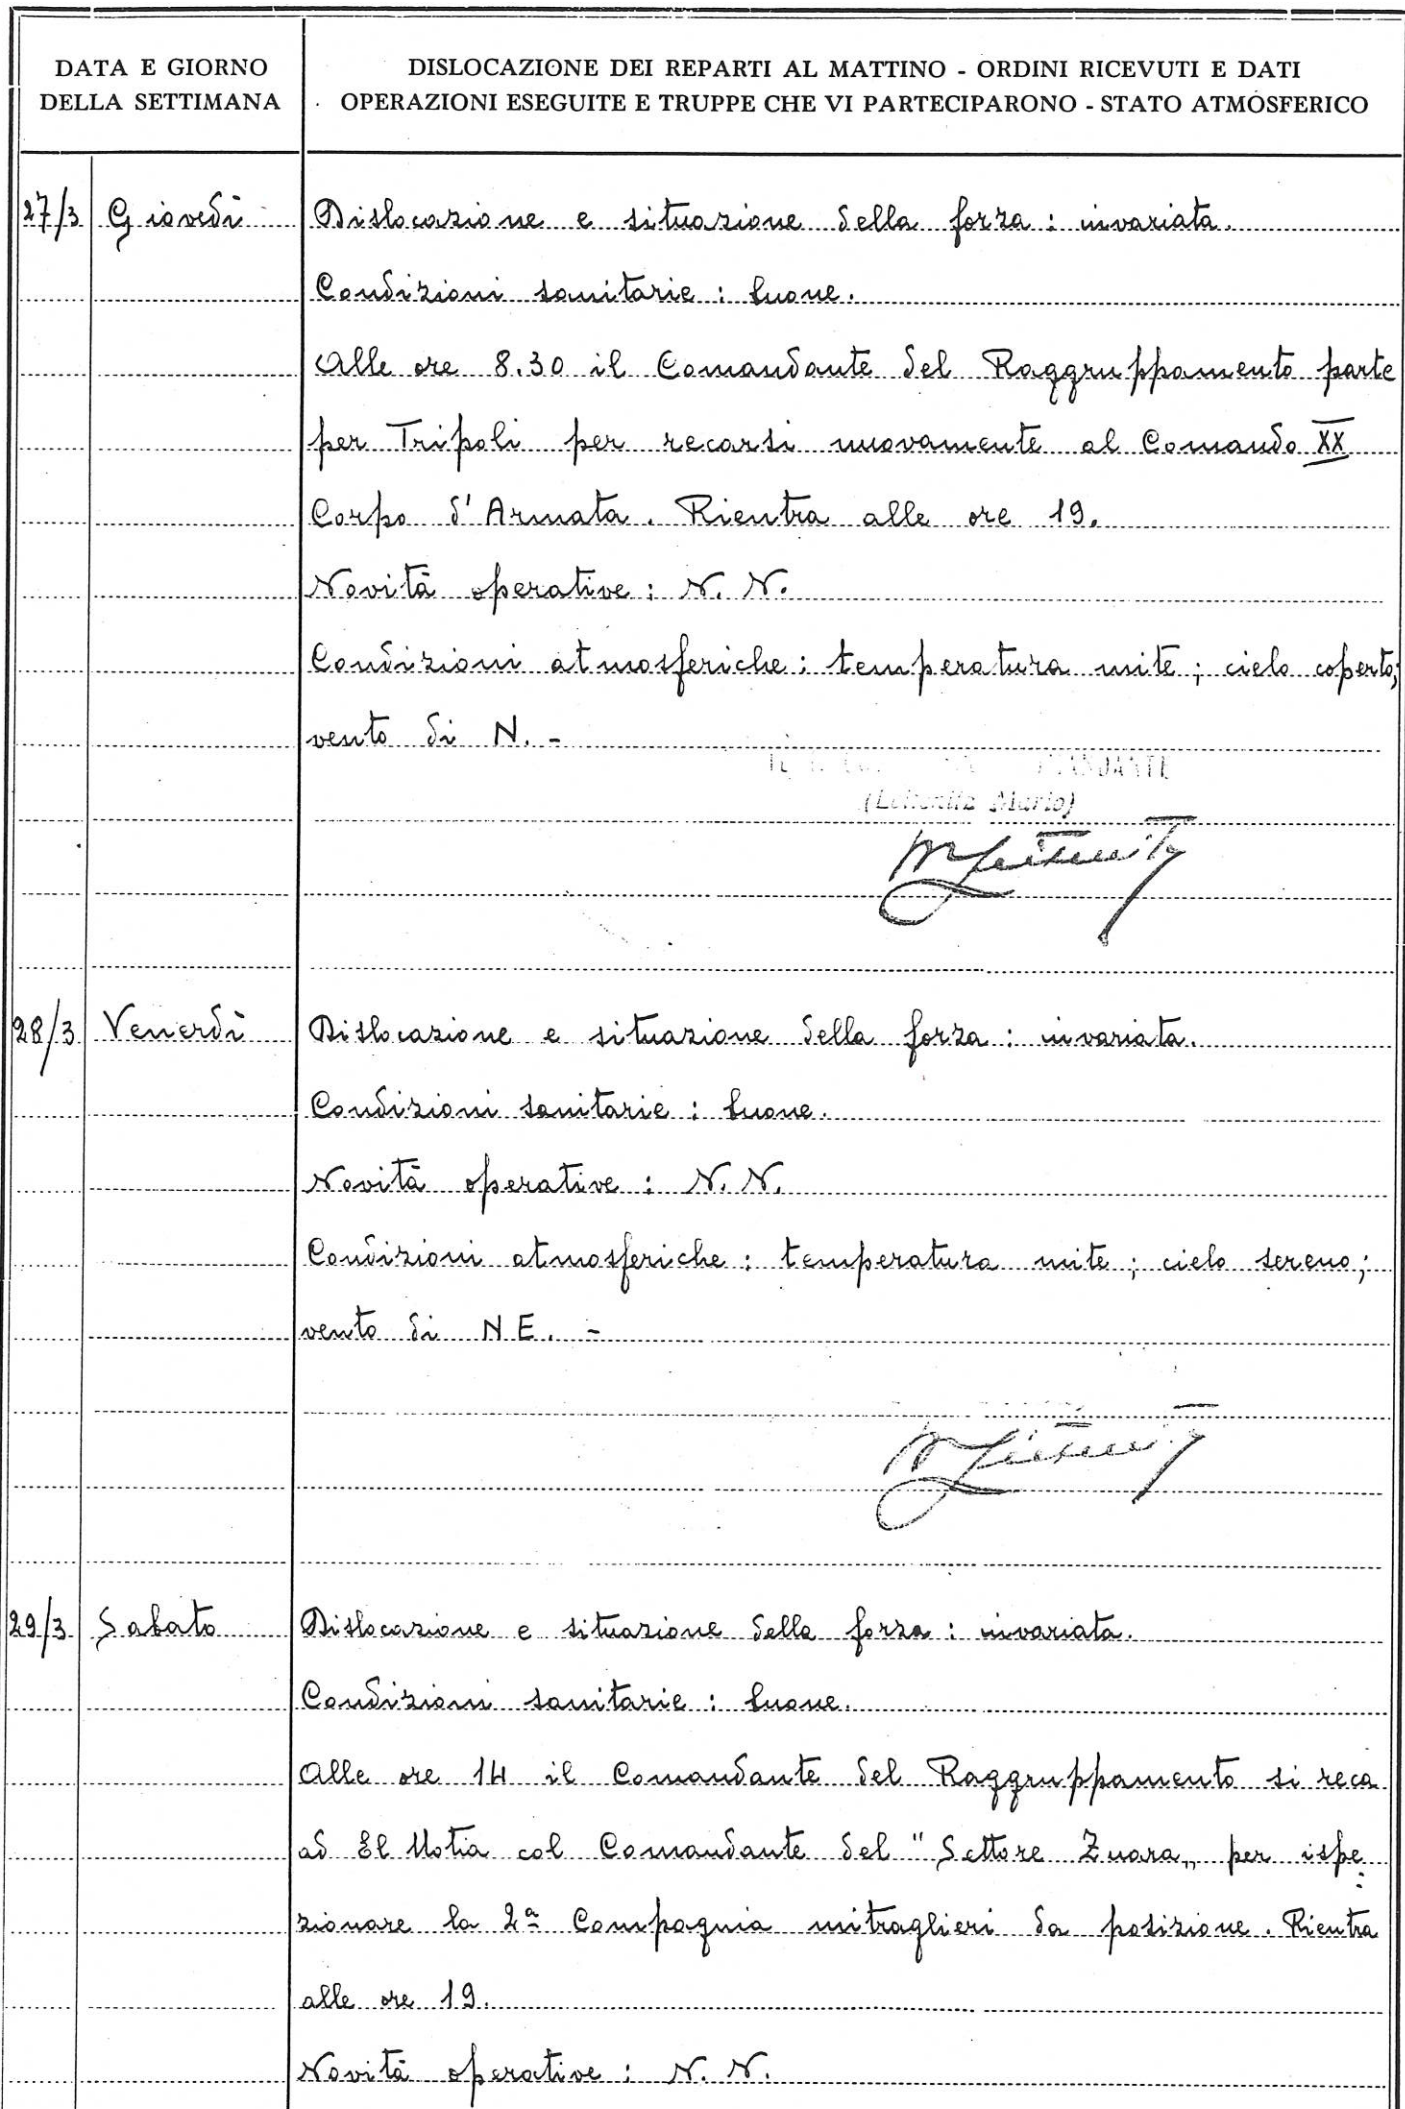 DATA E GIORNO
DELLA SETTIMANA
DISLOCAZIONE DEI REPARTI AL MATTINO - ORDINI RICEVUTI E DATI
OPERAZIONI ESEGUITE E TRUPPE CHE VI PARTECIPARONO - STATO ATMOSFERICO
27/3 Giovedì Dislocazione e situazione della forza: invariata.
Condizioni sanitarie: buone.
Alle ore 8.30 il Comandante del Raggruppamento parte
per Tripoli per recarsi nuovamente al Comando XX
Corpo d'Armata. Rientra alle ore 19.
Novità operative: N. N.
Condizioni atmosferiche: temperatura mite; cielo coperto;
vento di N. -
Mario)
28/3 Venerdì Dislocazione e situazione della forza: invariata.
Condizioni sanitarie: buone.
Novità operative: N. N.
Condizioni atmosferiche: temperatura mite; cielo sereno;
vento di NE. -
29/3 Sabato Dislocazione e situazione della forza: invariata.
Condizioni sanitarie: buone.
Alle ore 14 il Comandante del Raggruppamento si reca
ad El Uotia col Comandante del "Settore Zuara„ per ispe
zionare la 2ª Compagnia mitraglieri da posizione. Rientra
alle ore 19.
Novità operative: N. N.